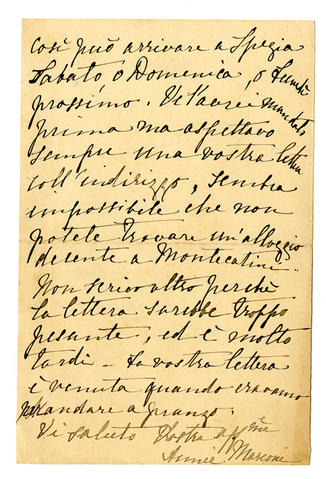 così può arrivare a Spezia
Sabato o Domenica, o Lunedì
prossimo. Ve l'avrei mandato
prima ma aspettavo
sempre una vostra lettera
coll'indirizzo, sembra
impossibile che non
potete trovare un'alloggio
decente a Montecatini.
Non scrivo altro perchè
la lettera sarebbe troppo
pesante, ed è molto
tardi – La vostra lettera
è venuta quando eravamo
andare a pranzo.
Vi saluto Vostra aff
Annie Marconi